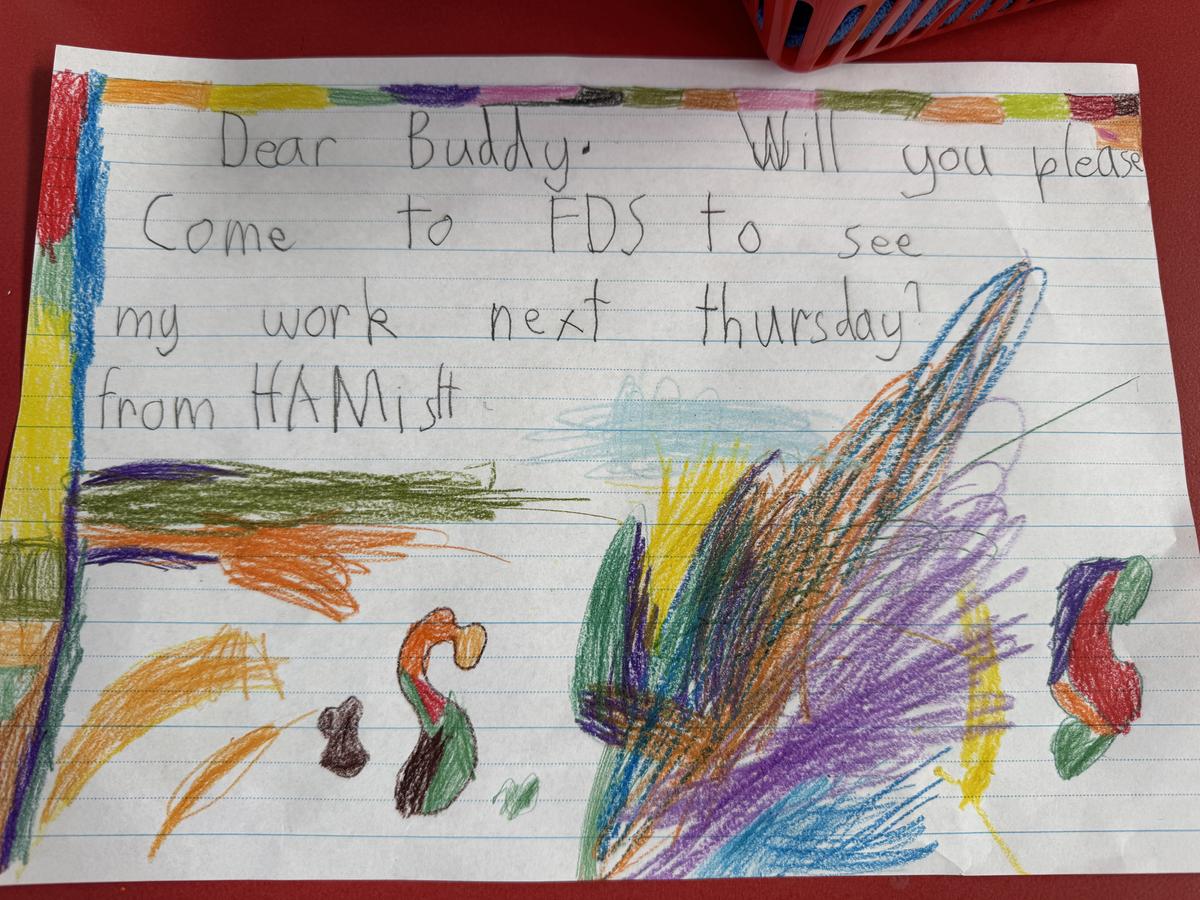 Dear Buddy. Will you please
Come to FDS to see
my work next thursday?
from HAMisH